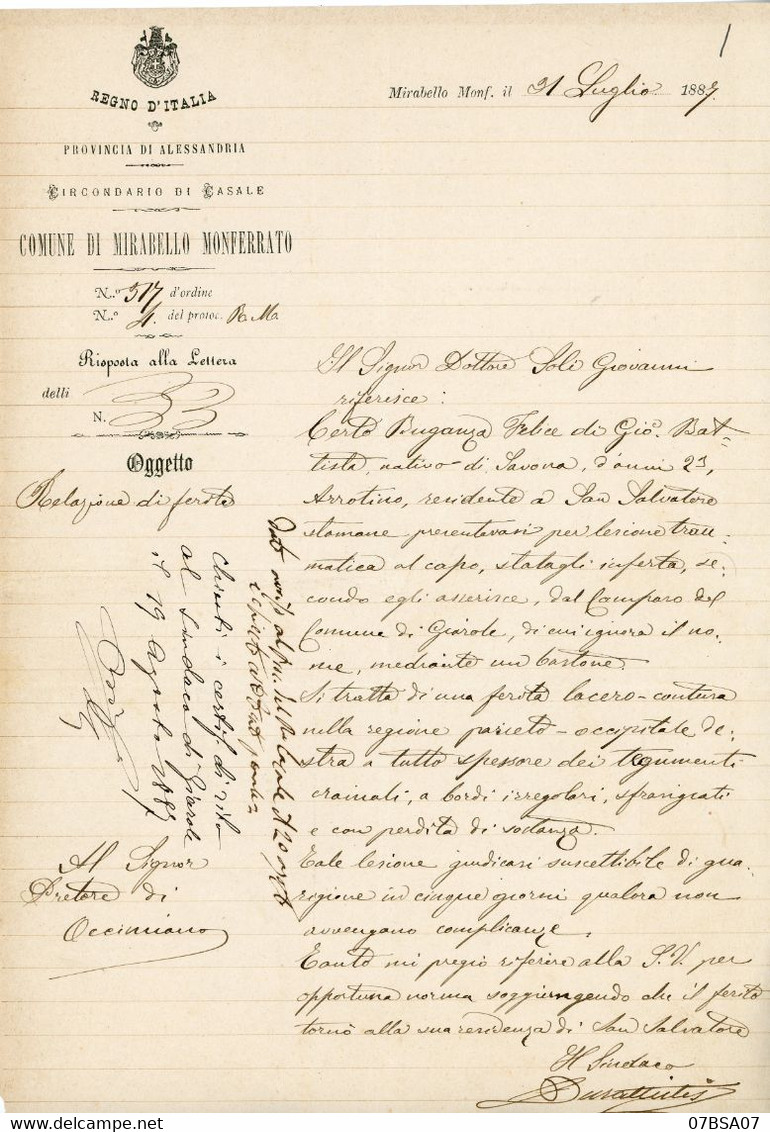 REGNO D'ITALIA
PROVINCIA DI ALESSANDRIA
CIRCONDARIO DI CASALE
COMUNE DI MIRABELLO MONFERRATO
N.º 517 d'ordine
N.º 4. del protoc. R. Ma
Risposta alla Lettera
delli
N. 33
Oggetto
Relazione di ferite
Mirabello Monf. il 31 Luglio 1887.
Il Signor Dottore Soli Giovanni
riferisce:
Certo Buganza Felice di Gio. Bat-
tista, nativo di Savona, d'anni 23,
Arrotino, residente a San Salvatore
stamane presentavasi per lesione trau-
matica al capo, statagli inferta, se-
condo egli asserisce, dal Camparo del
Comune di Giarole, di cui ignora il no-
me, mediante un bastone.
Si tratta di una ferita lacero-contusa
nella regione parieto-occipitale de-
stra a tutto spessore dei tegumenti
craniali, a bordi irregolari, sfrangiati
e con perdita di sostanza.
Tale lesione giudicasi suscettibile di gua-
rigione in cinque giorni qualora non
avvengano complicanze.
Tanto mi pregio riferire alla S.V. per
opportuna norma soggiungendo che il ferito
tornò alla sua residenza di San Salvatore
Il Sindaco
Chiesti i certif. di rito
al Sindaco di Giarole
il 19 Agosto 1887
Al Signor
Pretore di
Occimiano
07BSA07